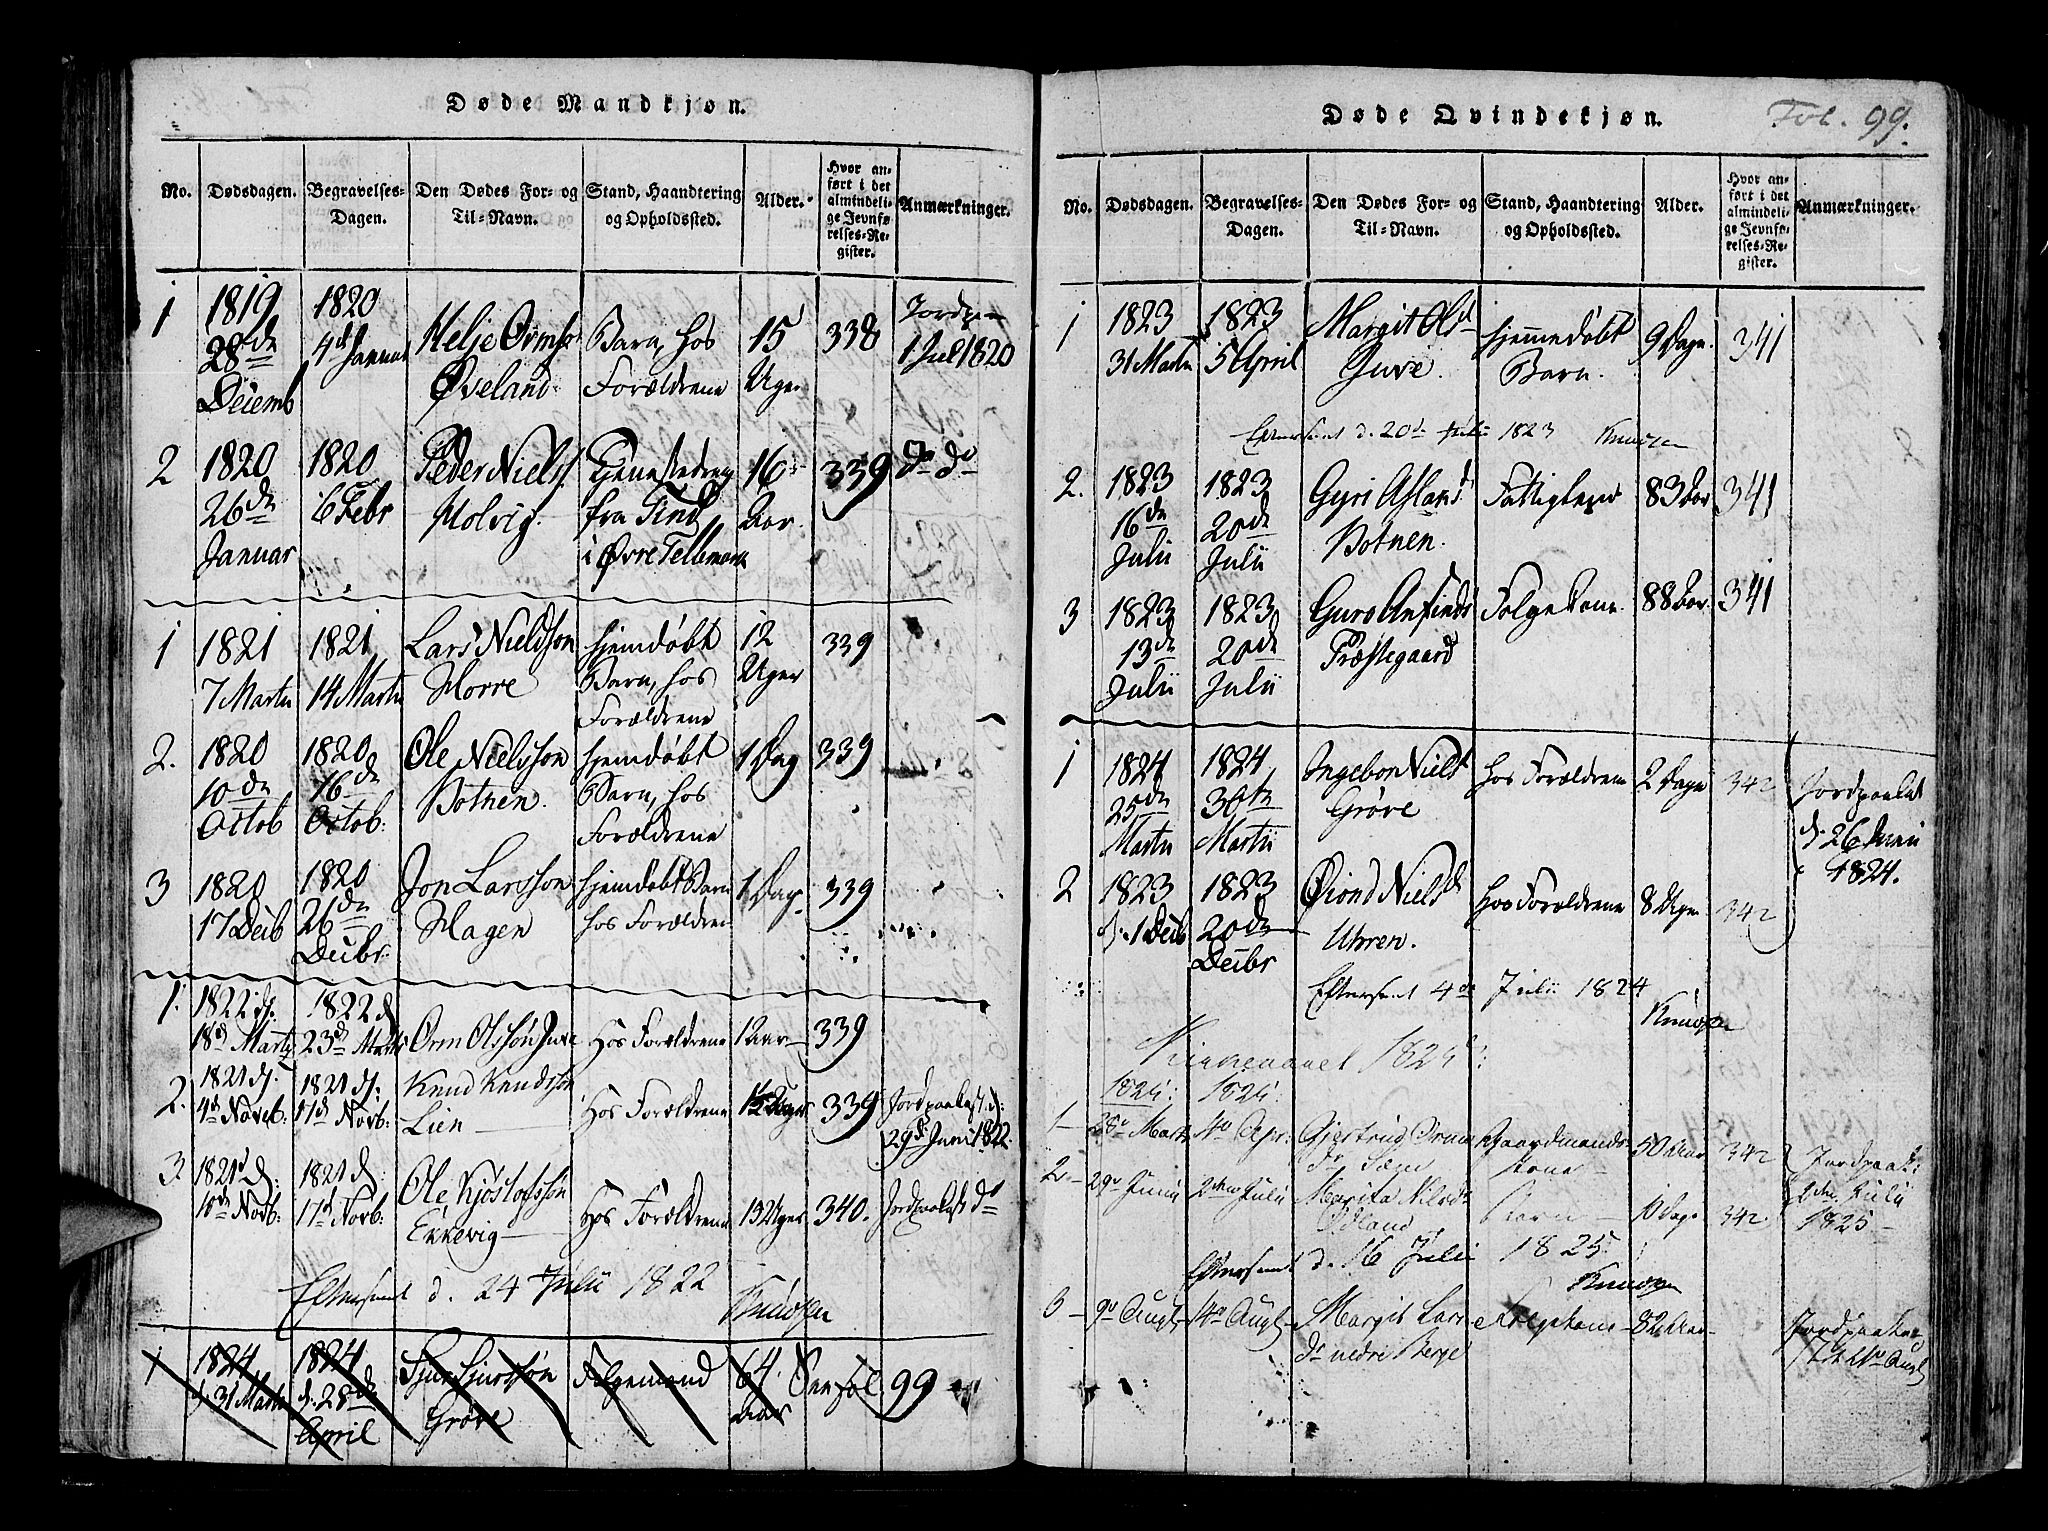 Døde Mandkjøn.
No. Dødsdagen. Begravelses-Dagen. Den Dødes For- og Til-Navn. Stand, Haandtering og Opholdssted. Alder. Hvor anført i det almindelige Jevnførelses-Register. Anmærkninger.
1 1819 28de Decemb 1820 4de Januar Helje Ormss Øveland Barn, hos Forældrene 15 Uger 338 1 Jul 1820
2 1820 26de Januar 1820 6 Febr Peder Nielss Molvig fra Tind i Øvre Tellemark 16 Aar. 339 do do
1 1821 7 Martii 1821 14 Martii Lars Nielsson Horre hjemdøbt Barn, hos Forældrene 12 Uger 339
2. 1820 10de Octob 1820 16de Octob: Ole Nielsson Botnen. hjemdøbt Barn, hos Forældrene 1 Dag 339
3 1820 17 Decb 1820 26de Decbr. Jon Larsson Hagen hjemdøbt Barn hos Forældren 1 Dag. 339
1. 1822 d. 18de Marty 1822 d 23de Martii Orm Olssøn Juve Hos Forældrene 1 Aar 339
2. 1821 d. 4de Noveb. 1821 d: 17de Novb: Knud Knudssøn Lien Hos Forældrene 12 Uger 339 Jordpaakast d: 29de Juni 1822.
3. 1821 d: 10de Novb: 1821 d: 17de Novb: Ole Kjøstolfssøn Ekkevig Hos Forældrene 13 Uger 340. Jordpaakast do
Efterseet d. 24 Julii 1822 Knudsen
1 1824 d. 31 Martii 1824 d. 28de April Sjur Sjurssøn Grøve Folgemand 64 Aar See fol. 99
Døde Qvindekjøn. Fol. 99.
No. Dødsdagen. Begravelses-Dagen. Den Dødes For- og Til-Navn. Stand, Haandtering og Opholdssted. Alder. Hvor anført i det almindelige Jevnførelses-Register. Anmærkninger.
1 1823 31 Martii 1823 5 April Margit Olsd Juve. hjemmedøbt Barn. 9 Dage. 341
Efterseet d. 20de Julii 1823 Knudsen
2. 1823 16de Julii 1823 20de Julii Gyri Aslansd Botnen. Fattiglem 83 Aar 341
3 1823 13de Julii 1823 20de Julii Guro Anfinds Præstegaard Folgekone. 88 Aar. 341
1 1824 25de Martii 1824 30te Martii Ingebor Nielsd Grøve hos Forældrene 2 Dage 342 Jordpaakast d. 26 Junii 1824.
2 1823 d. 1 Decb 1823 20de Decbr Øiond Nielsd Uhren. hos Forældrene 8 Uger 342
Efterseet 4de Julii 1824 Knudsen
Kirkeaaret 1825:
1825: 1825:
1 28e Marts 4de Apr. Gjertrud Orms dr Sæm Gaardmands kone 50 Aar 342 Jordpaak: 2den Julii 1825
2 29e Junii 2den Julii Margita Nilsdr Odland Barn 10 Dage 342.
Efterseet d. 16 Julii 1825 Knudsen
3 9de Augt 14de Augt Margit Lars dr nedre Berge Folgekone 82 Aar Jordpaakast Augt